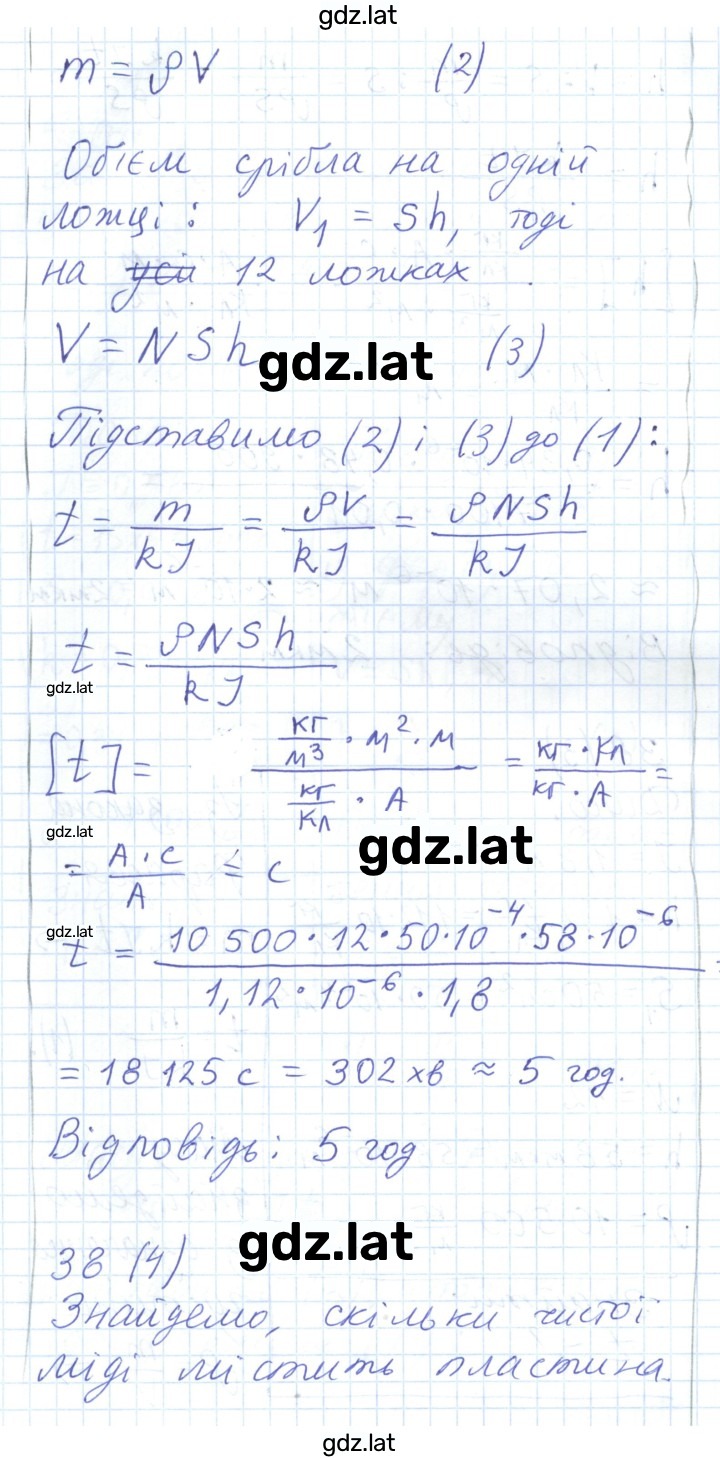 gdz.lat
m = ρV (2)
Об'єм срібла на одній
ложці: V₁ = Sh, тоді
на усіх 12 ложках
V = NSh (3)
gdz.lat
Підставимо (2) і (3) до (1):
t = m/kJ = ρV/kJ = ρNSh/kJ
t = ρNSh/kJ
gdz.lat
[t] = (кг/м³ · м² · м)/(кг/Кл · А) = кг · Кл/кг · А =
gdz.lat
gdz.lat
= А · с/А = с
gdz.lat
t = 10 500 · 12 · 50 · 10⁻⁴ · 58 · 10⁻⁶/1,12 · 10⁻⁶ · 1,8 =
= 18 125 с = 302 хв ≈ 5 год.
Відповідь: 5 год
gdz.lat
38 (4)
Знайдемо, скільки чистої
міді містить пластина.
gdz.lat